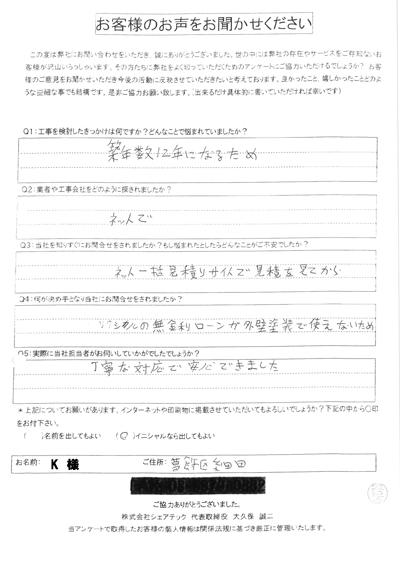 お客様のお声をお聞かせください
この度は弊社にお問い合わせをいただき、誠にありがとうございました。世の中には弊社の存在やサービスをご存知ないお
客様が沢山いらっしゃいます。その方たちに弊社をよく知っていただくためのアンケートにご協力いただけるでしょうか？お客
様のご意見をお聞かせいただき今後の活動に反映させていただきたいと考えております。良かったこと、嬉しかったことどのよ
うな些細な事でも結構です。是非ご協力お願い致します。（出来るだけ具体的に書いていただければ幸いです）
Q1：工事を検討したきっかけは何ですか？どんなことで悩まれていましたか？
築年数12年になるため
Q2：業者や工事会社をどのように探されましたか？
ネットで
Q3：当社を知りすぐにお問合せをされましたか？もし悩まれたとしたらどんなことがご不安でしたか？
ネット一括見積りサイトで見積を見てから
Q4：何が決め手となり当社にお問合せをされましたか？
の無金利ローンが外壁塗装で使えないため
Q5：実際に当社担当者がお伺いしていかがでしたでしょうか？
丁寧な対応で安心できました
＊上記についてお願いがあります。インターネットや印刷物に掲載させていただいてもよろしいでしょうか？下記の中から〇印
をお付下さい。
（　　）名前を出してもよい　（〇）イニシャルなら出してもよい
お名前： K 様 ご住所： 葛飾区細田
ご協力ありがとうございました。
株式会社シェアテック 代表取締役 大久保 誠二
当アンケートで取得したお客様の個人情報は関係法規に基づき厳正に管理いたします。